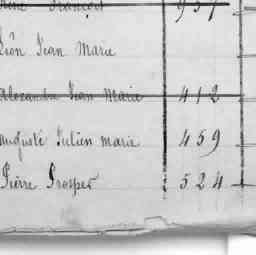 René François 957
Léon Jean Marie
Alexandre Jean Marie 412
Auguste Julien marie 459
Pierre Prosper 524